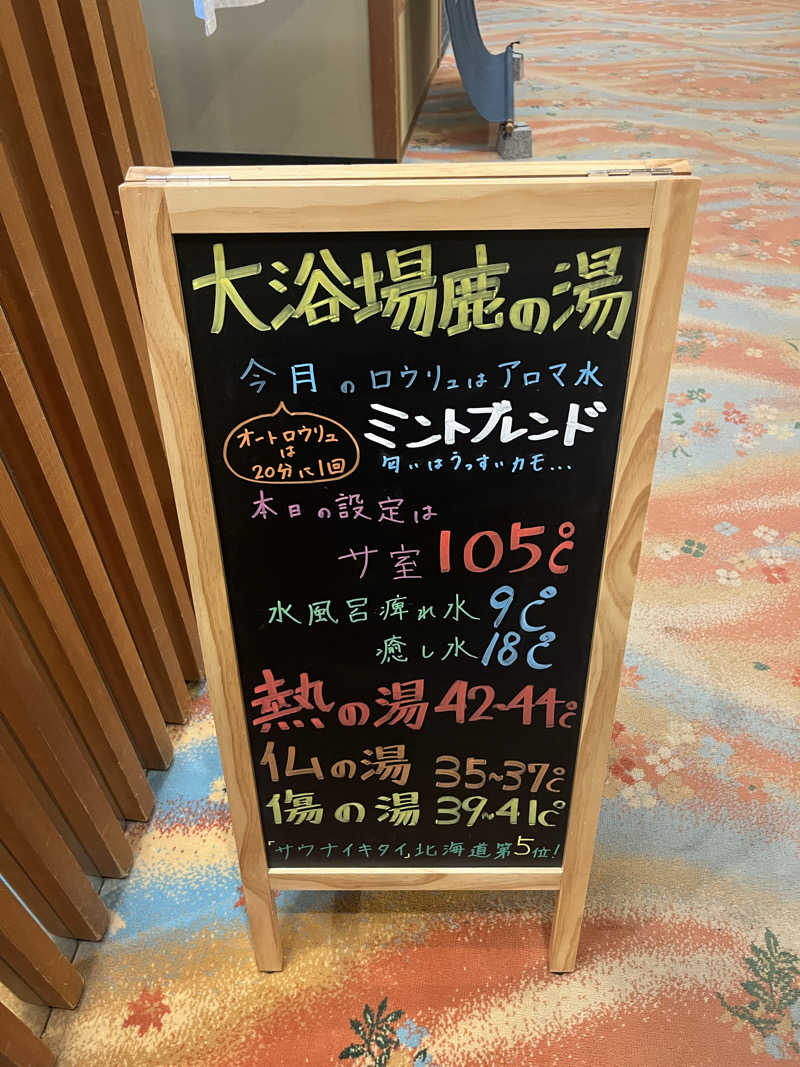 大浴場鹿の湯
今月のロウリュはアロマ水
ミントブレンド
オートロウリュ
は
20分に1回
匂いはうっすいカモ...
本日の設定は
サ室 105℃
水風呂痺れ水 9℃
癒し水 18℃
熱の湯 42~44℃
仏の湯 35~37℃
傷の湯 39~41℃
「サウナイキタイ」北海道第5位!